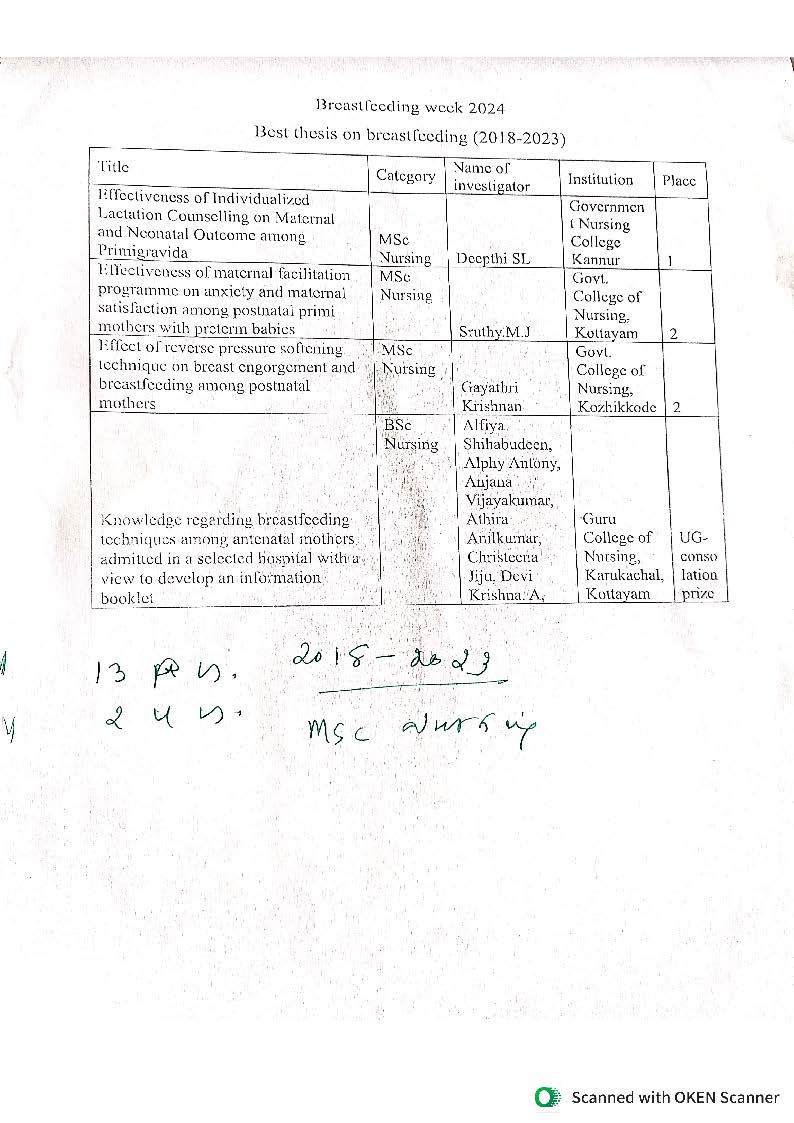 Breastfeeding week 2024
Best thesis on breastfeeding (2018-2023)
Title
Category
Name of
investigator
Institution
Place
Effectiveness of Individualized
Lactation Counselling on Maternal
and Neonatal Outcome among
Primigravida
MSc
Nursing
Deepthi SL
Governmen
t Nursing
College
Kannur
1
Effectiveness of maternal facilitation
programme on anxiety and maternal
satisfaction among postnatal primi
mothers with preterm babies
MSc
Nursing
Sruthy.M.J
Govt.
College of
Nursing,
Kottayam
2
Effect of reverse pressure softening
technique on breast engorgement and
breastfeeding among postnatal
mothers
MSc
Nursing
Gayathri
Krishnan
Govt.
College of
Nursing,
Kozhikkode
2
Knowledge regarding breastfeeding
techniques among antenatal mothers
admitted in a selected hospital with a
view to develop an information
booklet
BSc
Nursing
Alfiya
Shihabudeen,
Alphy Antony,
Anjana
Vijayakumar,
Athira
Anilkumar,
Christeena
Jiju, Devi
Krishna. A,
Guru
College of
Nursing,
Karukachal,
Kottayam
UG-
conso
lation
prize
13
2018 - 2023
2
MSc Nursing
Scanned with OKEN Scanner